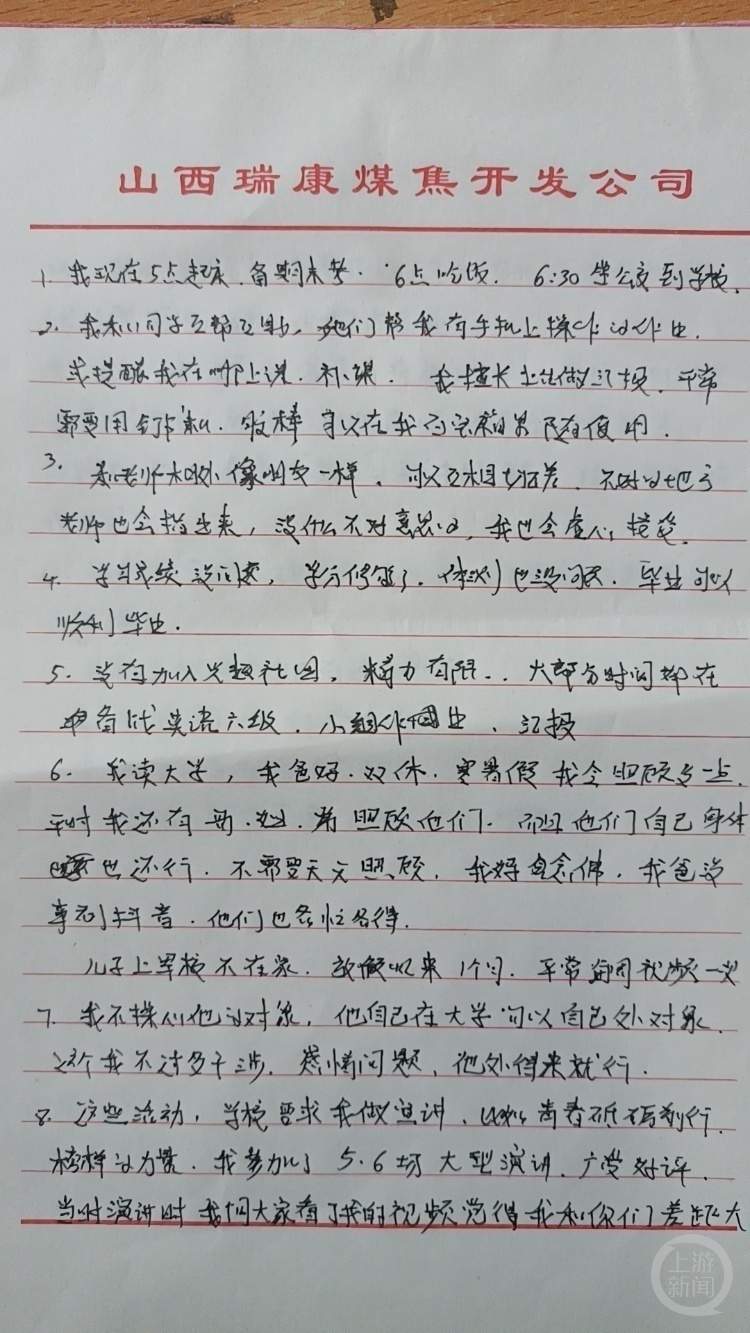 山西瑞康煤焦开发公司
1. 我现在5点起床.备期末考.6点吃饭. 6:30坐公交到学校.
2. 我和同学互帮互助,他们帮我在手机上操作作业.
或提醒我在哪上课. 我擅长上台做汇报.平常
需要用
3. 我和老师相处像朋友一样.可以互相 不对的地方
老师也会指出来,没什么不好意思的,我也会虚心接受.
4. 学习成绩没问题,学分修够了.体测也没问题.毕业可以
顺利毕业.
5. 没有加入兴趣社团,精力有限..大部分时间都在
准备 英语六级.小组作业.汇报
6. 我读大学,我爸妈.双休.寒暑假我会照顾多一点.
平时我还有 照顾他们.而且他们自己身体
也还行.不需要天天照顾,我妈念佛.我爸没
事刷抖音.他们也各忙各得.
儿子上军校不在家.放假回来1个月.平常 视频一次
7. 我不操心他的对象,他自己在大学可以自己处对象.
这个我不过多干涉.感情问题,他处得来就行.
8. 这些活动,学校要求我做宣讲. 青春砥砺前行.
榜样的力量.我参加了5.6场大型演讲.广受好评.
当时演讲时我问大家看了我的视频觉得我和你们差距大
上游新闻